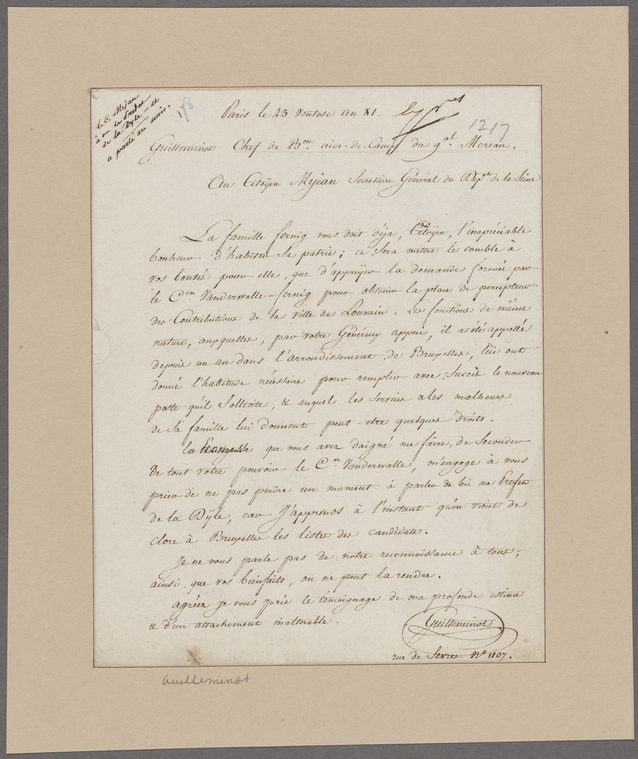 le C. Mejan
a vu le Préfet
de la Dyle et
a parlé au mien.
Paris le 23 Ventose an XI.
1217
Guilleminot Chef de Bon. aide-de-Camp du gal. Moreau.
Au Citoÿen Mejean Secretaire Général du Dépt. de la Seine
La famille fernig vous doit déja, Citoÿen, l'inapréciable
bonheur d'habiter Sa patrie; ce Sera mettre le comble à
vos bontés pour elle, que d'appuÿer la demande formée par
le Cen Vanderwalle-fernig pour obtenir la place de percepteur
des Contributions de la ville de Louvain. Les fonctions de même
nature, auxquelles, par votre Généreux appui, il a été appellé
depuis un an dans l'arrondissement de Bruxelles, lui ont
donné l'habitude nécéssaire pour remplir avec Succès le nouveau
poste qu'il Sollicite, & auquel les Services & les malheurs
de Sa famille lui donnent peut-etre quelques droits.
La que vous avez daigné me faire, de Seconder
de tout votre pouvoir le Cen Vanderwalle, m'engage à vous
prier de ne pas perdre un moment à parler de lui au Préfet
de la Dÿle, car J'apprends à l'instant qu'on vient de
clore à Bruxelles les listes des candidats.
Je ne vous parle pas de notre reconnoissance à tous;
ainsi que vos bienfaits, on ne peut la rendre.
agréez je vous prie le témoignage de ma profonde estime
& d'un attachement inaltérable.
Guilleminot
rue de Sevres No 1107.
Guilleminot